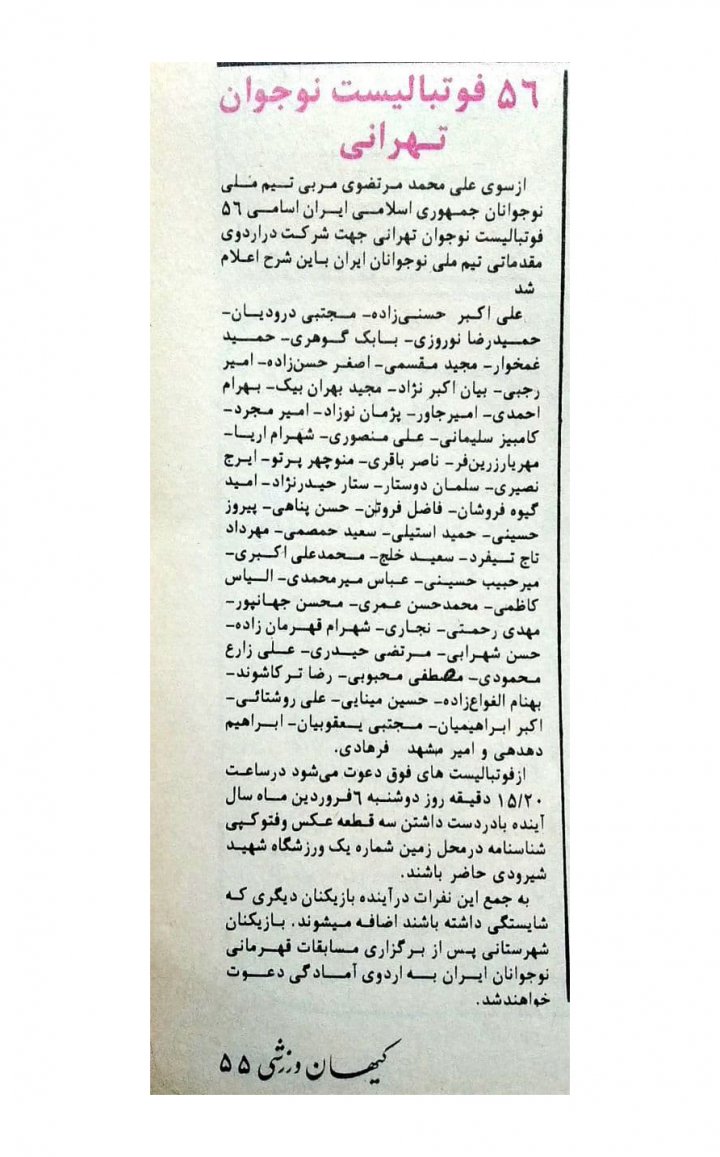 ۵۶ فوتبالیست نوجوان
تهرانی
ازسوی علی محمد مرتضوی مربی تیم ملی
نوجوانان جمهوری اسلامی ایران اسامی ۵۶
فوتبالیست نوجوان تهرانی جهت شرکت دراردوی
مقدماتی تیم ملی نوجوانان ایران باین شرح اعلام
شد
علی اکبر حسنی‌زاده- مجتبی درودیان-
حمیدرضا نوروزی- بابک گوهری- حمید
غمخوار- مجید مقسمی- اصغر حسن‌زاده- امیر
رجبی- بیان اکبر نژاد- مجید بهران بیک- بهرام
احمدی- امیرجاور- پژمان نوزاد- امیر مجرد-
کامبیز سلیمانی- علی منصوری- شهرام اریا-
مهریارزرین‌فر- ناصر باقری- منوچهر پرتو- ایرج
نصیری- سلمان دوستار- ستار حیدرنژاد- امید
گیوه فروشان- فاضل فروتن- حسن پناهی- پیروز
حسینی- حمید استیلی- سعید حمصمی- مهرداد
تاج تیفرد- سعید خلج- محمدعلی اکبری-
میرحبیب حسینی- عباس میرمحمدی- الیاس
کاظمی- محمدحسن عمری- محسن جهانپور-
مهدی رحمتی- نجاری- شهرام قهرمان زاده-
حسن شهرابی- مرتضی حیدری- علی زارع
محمودی- مصطفی محبوبی- رضا ترکاشوند-
بهنام الغواع‌زاده- حسین مینایی- علی روشتائی-
اکبر ابراهیمیان- مجتبی یعقوبیان- ابراهیم
دهدهی و امیر مشهد فرهادی.
ازفوتبالیست های فوق دعوت می‌شود درساعت
۱۵/۲۰ دقیقه روز دوشنبه ۶فروردین ماه سال
آینده بادردست داشتن سه قطعه عکس وفتوکپی
شناسنامه درمحل زمین شماره یک ورزشگاه شهید
شیرودی حاضر باشند.
به جمع این نفرات درآینده بازیکنان دیگری که
شایستگی داشته باشند اضافه میشوند. بازیکنان
شهرستانی پس از برگزاری مسابقات قهرمانی
نوجوانان ایران به اردوی آمادگی دعوت
خواهندشد.
کیهان ورزشی ۵۵